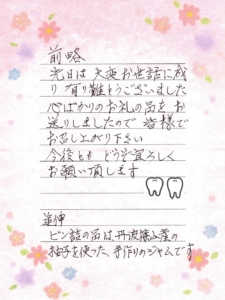 前略
先日は 大変お世話に成
り 有り難とうございました
心ばかりのお礼の品を お
送りしましたので 皆様で
お召し上がり下さい
今後とも どうぞ宜ろしく
お願い頂します
追伸
ビン詰の品は、丹波篠山産の
柚子を使った、手作りのジャムです